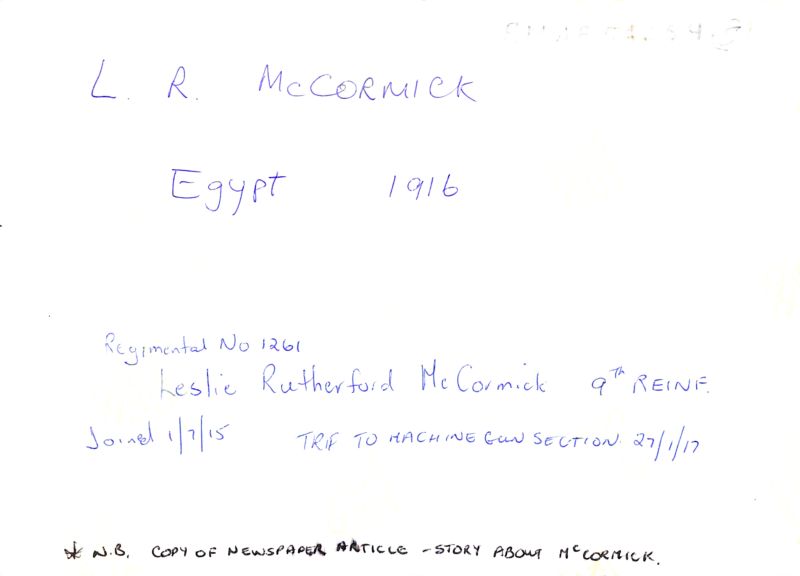 L. R. McCORMICK
Egypt 1916
Regimental No 1261
Leslie Rutherford McCormick 9TH REINF.
Joined 1/7/15 TRF TO MACHINE GUN SECTION 27/1/17
* N.B. COPY OF NEWSPAPER ARTICLE - STORY ABOUT McCORMICK.